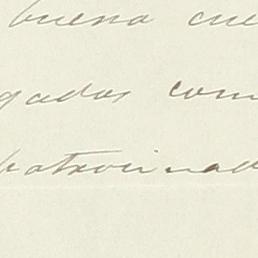 buena cue
gados com
patrocinad